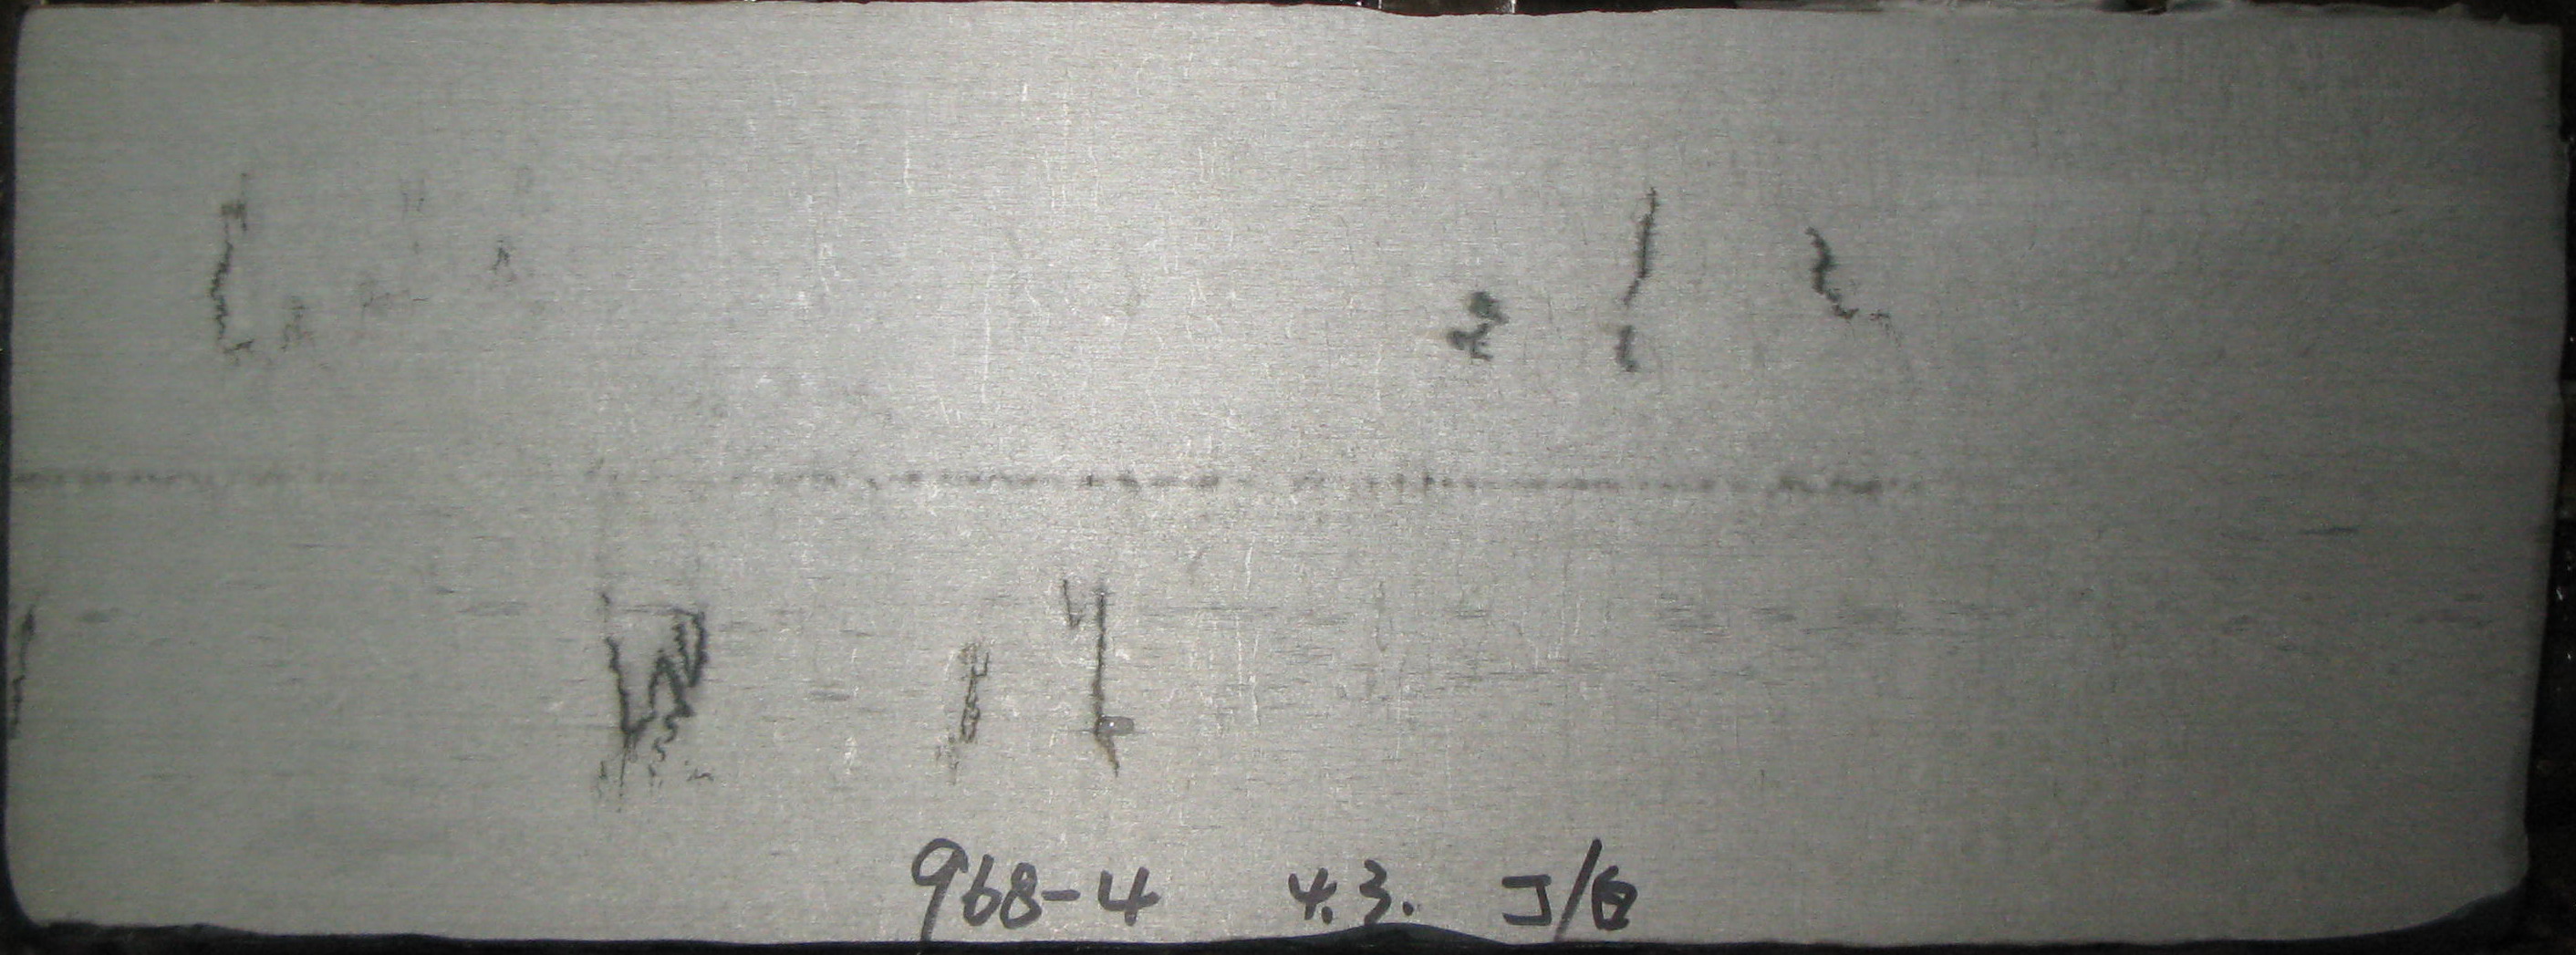 968-4 4.3. J/白